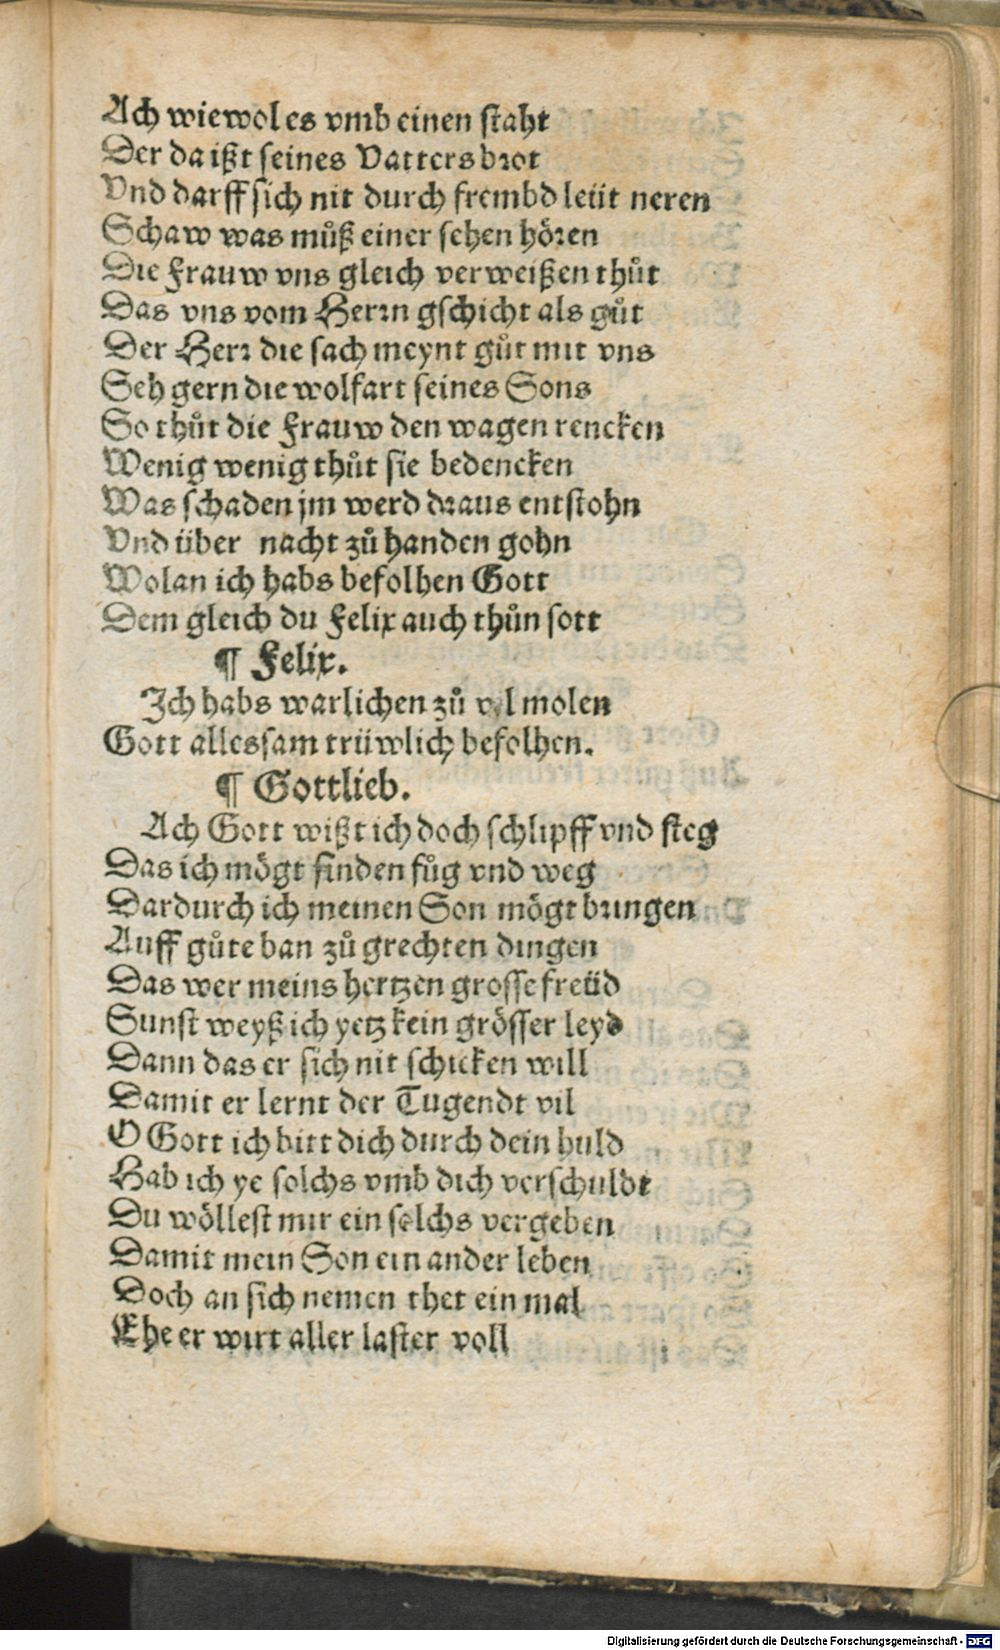 Ach wiewol es vmb einen staht
Der da ißt seines Vatters brot
Vnd darff sich nit durch frembd leüt neren
Schaw was můß einer sehen hören
Die Frauw vns gleich verweißen thůt
Das vns vom Herrn gschicht als gůt
Der Herr die sach meynt gůt mit vns
Seh gern die wolfart seines Sons
So thůt die Frauw den wagen rencken
Wenig wenig thůt sie bedencken
Was schaden jm werd draus entstohn
Vnd über nacht zů handen gohn
Wolan ich habs befolhen Gott
Dem gleich du Felix auch thůn sott
¶ Felix.
Ich habs warlichen zů vil molen
Gott allessam trüwlich befolhen.
¶ Gottlieb.
Ach Gott wißt ich doch schlipff vnd steg
Das ich mögt finden fůg vnd weg
Dardurch ich meinen Son mögt bringen
Auff gůte ban zů grechten dingen
Das wer meins hertzen grosse freüd
Sunst weyß ich yetz kein grösser leyd
Dann das er sich nit schicken will
Damit er lernt der Tugendt vil
O Gott ich bitt dich durch dein huld
Hab ich ye solchs vmb dich verschuldt
Du wöllest mir ein solchs vergeben
Damit mein Son ein ander leben
Doch an sich nemen thet ein mal
Ehe er wirt aller laster voll
Digitalisierung gefördert durch die Deutsche Forschungsgemeinschaft - DFG